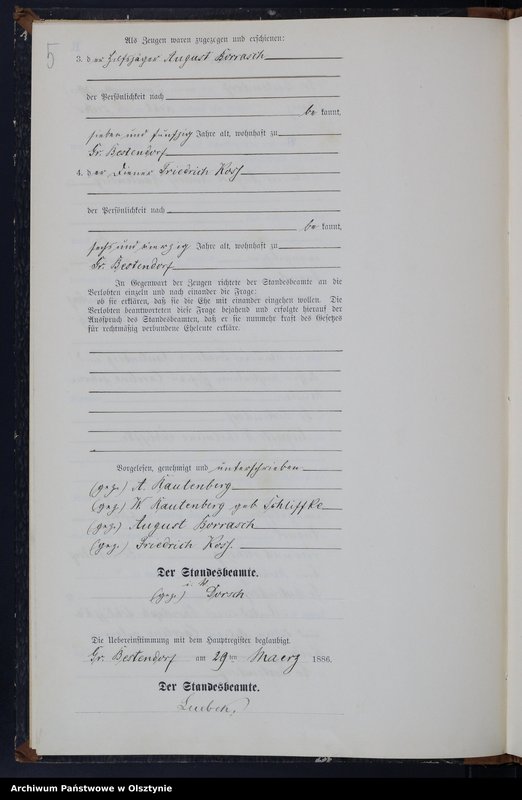 5
Als Zeugen waren zugezogen und erschienen:
3. der Hilfsjäger August Borrasch
der Persönlichkeit nach
be kannt,
sieben und fünfzig Jahre alt, wohnhaft zu
Gr. Bestendorf
4. der Diener Friedrich Koss
der Persönlichkeit nach
be kannt,
sechs und vierzig Jahre alt, wohnhaft zu
Gr. Bestendorf
In Gegenwart der Zeugen richtete der Standesbeamte an die
Verlobten einzeln und nach einander die Frage:
ob sie erklären, daß sie die Ehe mit einander eingehen wollen. Die
Verlobten beantworteten diese Frage bejahend und erfolgte hierauf der
Ausspruch des Standesbeamten, daß er sie nunmehr kraft des Gesetzes
für rechtmäßig verbundene Eheleute erkläre.
Vorgelesen, genehmigt und unterschrieben
(gez.) A. Rautenberg
(gez.) W Rautenberg geb Schliffke
(gez.) August Borrasch
(gez.) Friedrich Koss.
Der Standesbeamte.
(gez.) Dorsch
Die Uebereinstimmung mit dem Hauptregister beglaubigt.
Gr. Bestendorf am 29ten Maerz 1886.
Der Standesbeamte.
Archiwum Państwowe w Olsztynie